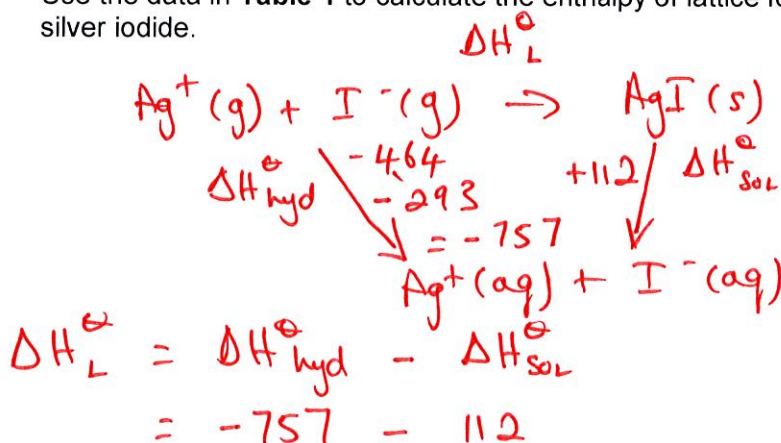 silver iodide.
ΔH⦵L
Ag⁺(g) + I⁻(g) → AgI(s)
ΔH⦵hyd -464 +112 ΔH⦵SOL
-293
= -757
Ag⁺(aq) + I⁻(aq)
ΔH⦵L = ΔH⦵hyd - ΔH⦵SOL
= -757 - 112